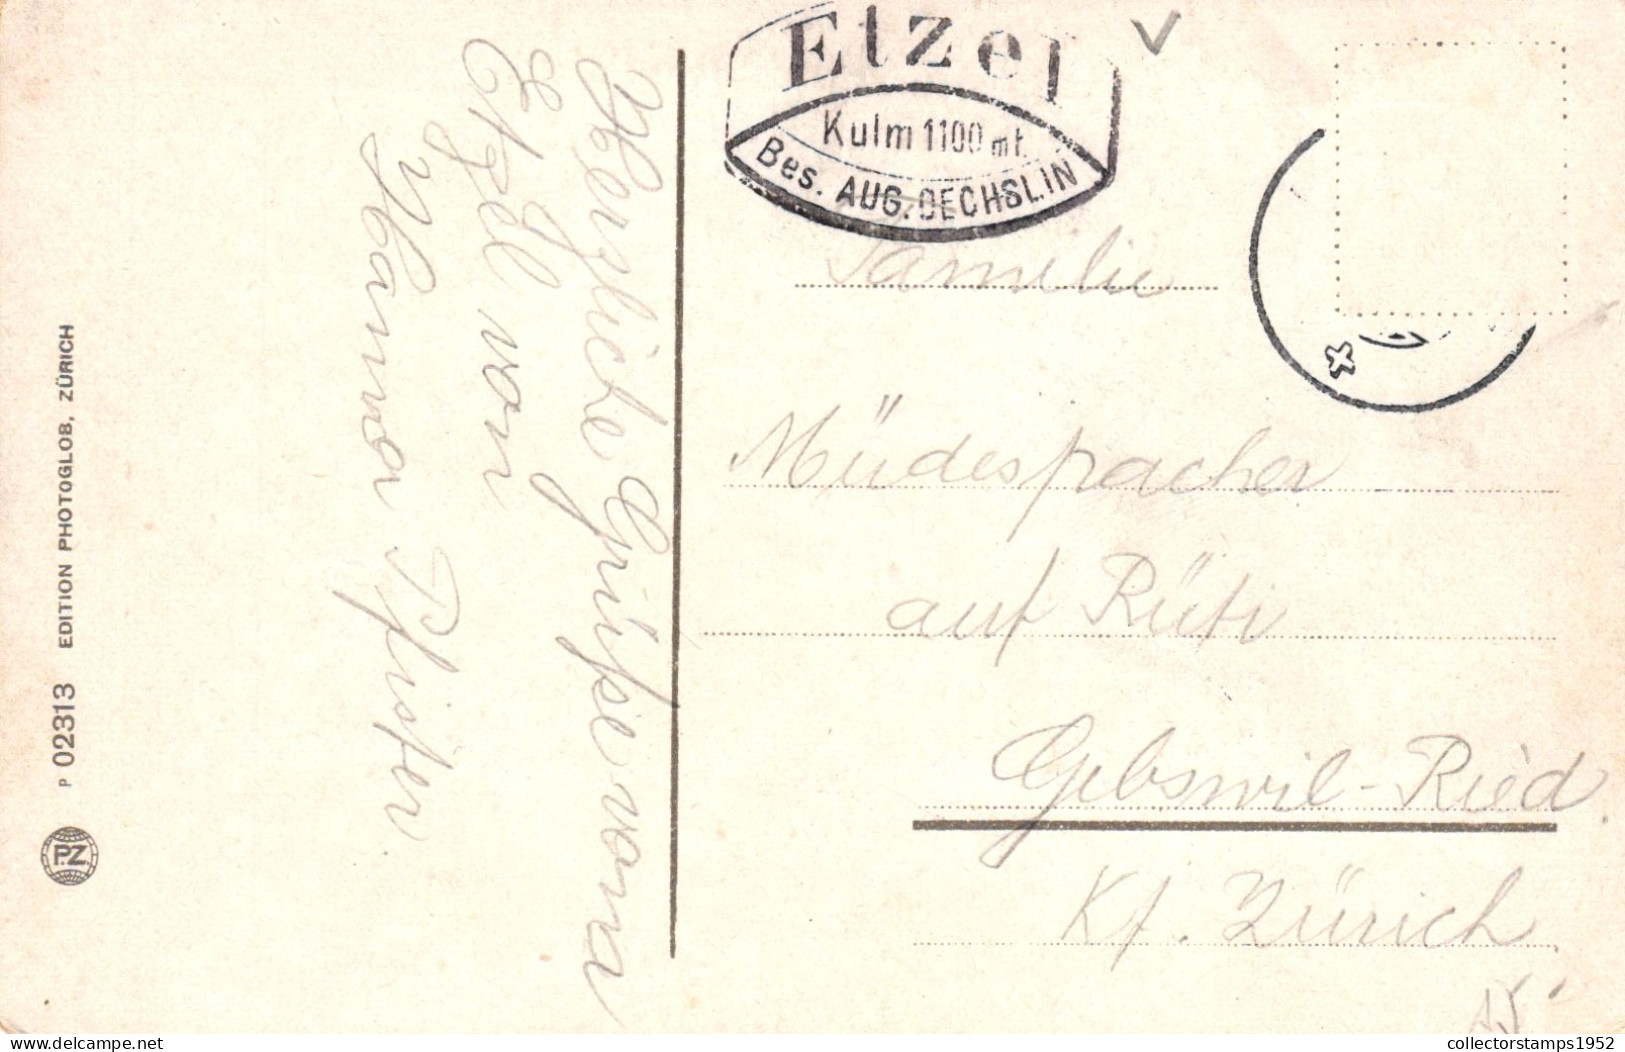 Etzel
Kulm 1100 mt.
Bes. AUG. OECHSLIN
Herzliche Grüsse vom
Etzel von
Hanna Pfister
Familie
Müdespacher
auf Rüti
Gibswil-Ried
Kt. Zürich
P 02313 EDITION PHOTOGLOB, ZÜRICH
PZ
collectorstamps1952
delcampe.net